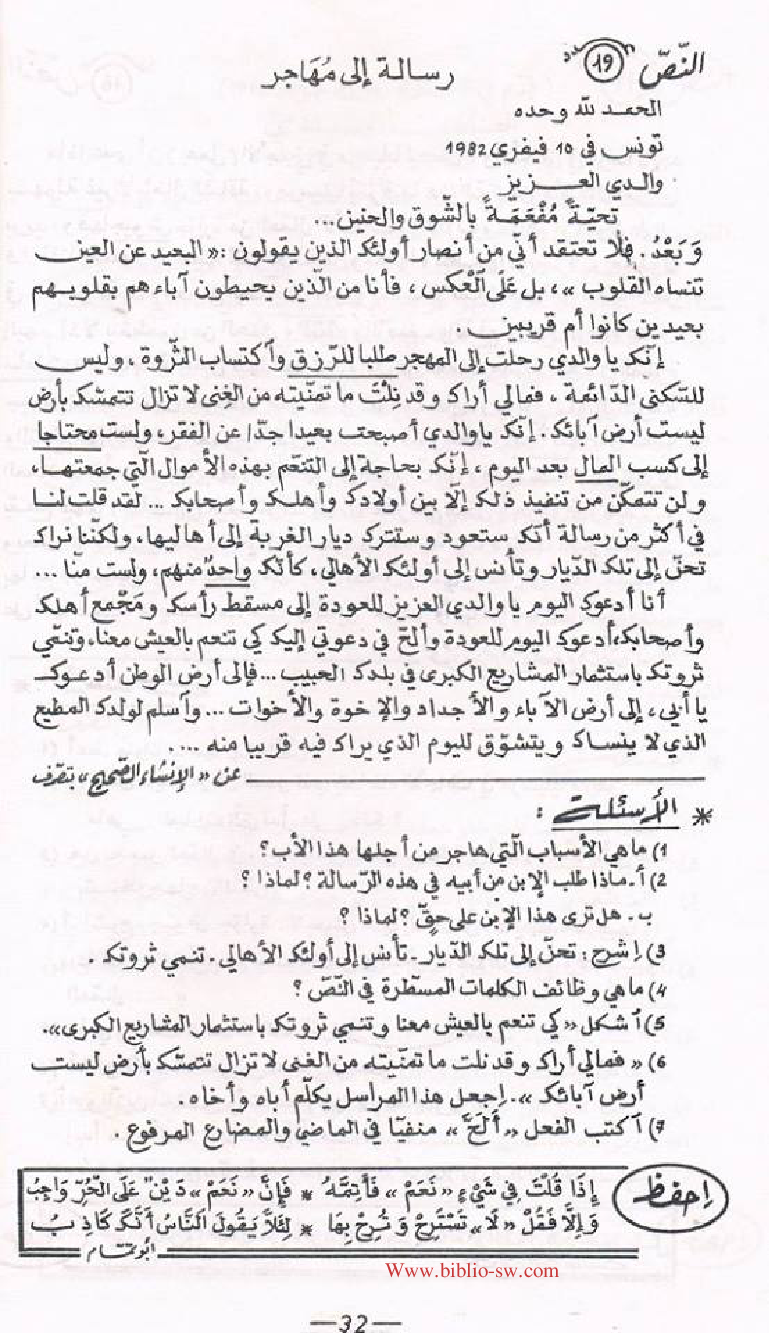 النّصّ 19
رسالة إلى مُهَاجر
الحمد لله وحده
تونس في 10 فيفري 1982
والدي العـــزيز
تحيّةً مُفْعَمَةً بالشّوق والحنين...
وَبَعْدُ. فلا تعتقد أنّي من أنصار أولئك الذين يقولون: «البعيد عن العين
تنساه القلوب»، بل عَلَى اَلْعكس، فأنا من الّذين يحيطون آباءهم بقلوبهم
بعيدين كانوا أم قريبين.
إنّك يا والدي رحلت إلى المهجر طلبا للرّزق وآكتساب الثّروة، وليس
للسّكنى الدّائمة، فمالي أراك وقد نِلْتَ ما تمنّيته من الغنى لا تزال تتمسّك بأرض
ليست أرض آبائك. إنّك يا والدي أصبحت بعيدا جدّا عن الفقر، ولست محتاجا
إلى كسب المال بعد اليوم، إنّك بحاجة إلى التنعّم بهذه الأموال الّتي جمعتها،
ولن تتمكّن من تنفيذ ذلك إلّا بين أولادك وأهلك وأصحابك... لقد قلت لنا
في أكثر من رسالة أنّك ستعود وستترك ديار الغربة إلى أهاليها، ولكنّنا نراك
تحنّ إلى تلك الدّيار وتأنس إلى أولئك الأهالي، كأنّك واحدٌ منهم، ولست منّا...
أنا أدعوك اليوم يا والدي العزيز للعودة إلى مسقط رأسك ومَجْمع أهلك
وأصحابك، أدعوك اليوم للعودة وألحّ في دعوتي إليك كي تنعم بالعيش معنا، وتنمّي
ثروتك باستثمار المشاريع الكبرى في بلدك الحبيب... فإلى أرض الوطن أدعوك
يا أبي، إلى أرض الآباء والأجداد والإخوة والأخوات... وآسلم لولدك المطيع
الذي لا ينساك ويتشوّق لليوم الذي يراك فيه قريبا منه ...
عن «الإنشاء الصّحيح» بتصرّف
* الأسئلة :
1) ماهي الأسباب الّتي هاجر من أجلها هذا الأب؟
2) أ. ماذا طلب الإبن من أبيه في هذه الرّسالة؟ لماذا؟
ب. هل ترى هذا الإبن على حقّ؟ لماذا؟
3) إشرح: تحنّ إلى تلك الدّيار. تأنس إلى أولئك الأهالي. تنمي ثروتك.
4) ماهي وظائف الكلمات المسطّرة في النّصّ؟
5) آشكل «كي تنعم بالعيش معنا وتنمي ثروتك باستثمار المشاريع الكبرى».
6) «فمالي أراك وقد نلت ما تمنّيته من الغنى لا تزال تتمسّك بأرض ليست
أرض آبائك». إجعل هذا المراسل يكلّم أباه وأخاه.
7) آكتب الفعل «أَلَحَّ» منفيّا في الماضي والمضارع المرفوع.
إحفظ
إِذَا قُلْتَ فِي شَيْءٍ «نَعَمْ» فَأَتِمَّهُ * فَإِنَّ «نَعَمْ» دَيْنٌ عَلَى الْحُرِّ وَاجِبُ
وَإِلَّا فَقُلْ «لَا» تَسْتَرِحْ وَتُرِحْ بِهَا * لِئَلَّا يَقُولَ اَلنَّاسُ أَنَّكَ كَاذِبُ
أبو تمّام
Www.biblio-sw.com
—32—